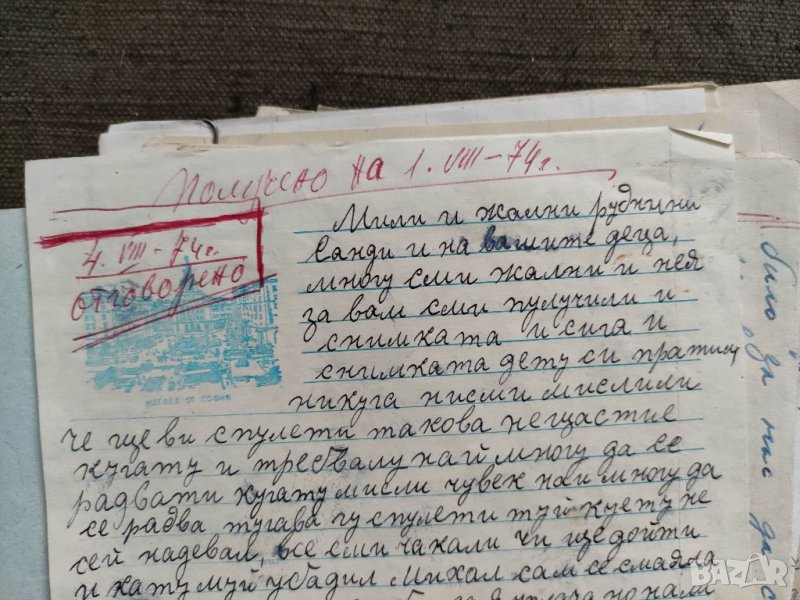 Получено на 1. VIII - 74г.
4. VIII - 74г.
отговорено
ИЗГЛЕД ОТ СОФИЯ
Мили и жални руднини
Санди и на вашите деца,
многу сми жални и нея
за вам сми пулучили и
снимката и сига и
снимката дету си пратищ
никуга нисми мислили
че ще ви спулети такова нещастие
кугату и требвалу най многу да се
радвати кугату мисли чувек наи многу да
се радва тугава гу спулети туй куету не
сей надевал, все сми чакали чи ще дойти
и кату муй убадил Михал сам се смаяла
било за нас да
BAZAR